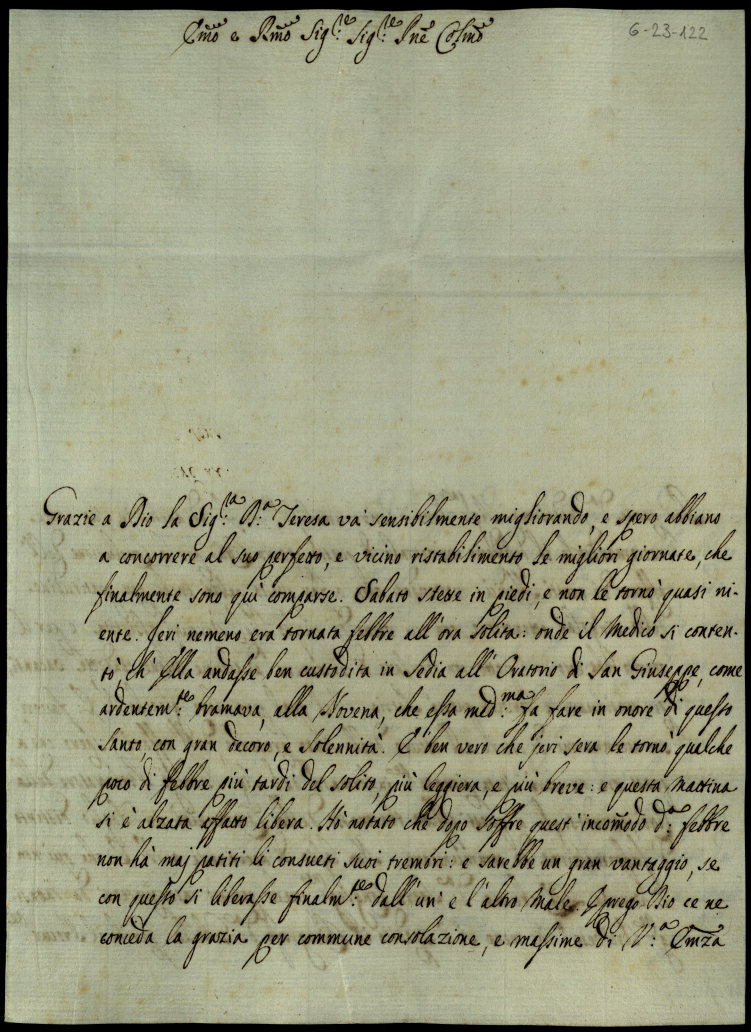 Emo e Rmo Sig.re Sig.re Pne Colmo
6-23-122
Grazie a Dio la Sig.ra D.a Teresa và sensibilmente migliorando, e spero abbiano
a concorrere al suo perfetto, e vicino ristabilimento le migliori giornate, che
finalmente sono quì comparse. Sabato stette in piedi, e non le tornò quasi ni-
ente. Jeri nemeno era tornata febbre all'ora solita: onde il Medico si conten-
tò, ch'Ella andasse ben custodita in Sedia all'Oratorio di San Giuseppe, come
ardentem.te bramava, alla Novena, che essa med.ma fa fare in onore di questo
Santo, con gran decoro, e solennità. È ben vero che jeri sera le tornò qualche
poco di febbre più tardi del solito, più leggiera, e più breve: e questa mattina
si è alzata affatto libera. Hò notato che dopo soffre quest'incomodo d.a febbre
non hà maj patiti li consueti suoi tremori: e sarebbe un gran vantaggio, se
con questo si liberasse finalm.te dall'un' e l'altro male. Prego Dio ce ne
conceda la grazia per commune consolazione, e massime di V.a Emza